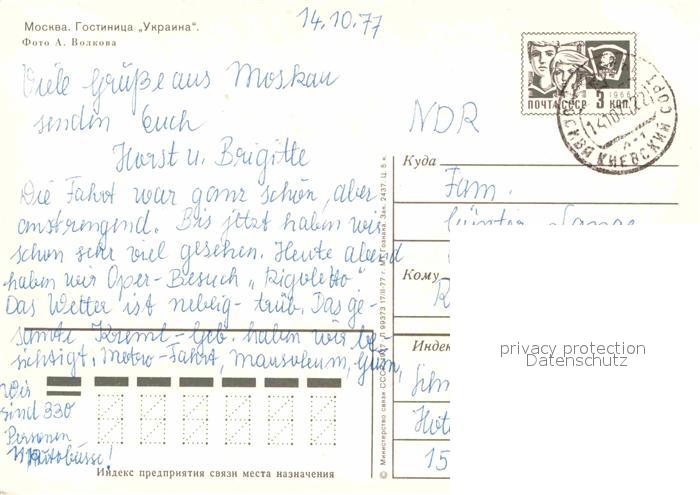 Москва. Гостиница „Украина".
Фото А. Волкова
14.10.77
Viele Grüße aus Moskau
senden Euch
Horst u. Brigitte
Die Fahrt war ganz schön, aber
anstrengend. Bis jetzt haben wir
schon sehr viel gesehen. Heute abend
haben wir Oper-Besuch „Rigoletto".
Das Wetter ist neblig-trüb. Das ge-
samte Kreml-Geb. haben wir be-
sichtigt, Metro-Fahrt, Mausoleum, Gum,
Wir
sind 330
Personen
Autobusse!
Индекс предприятия связи места назначения
© Министерство связи СССР
Л 99373 17/II-77 г. Гознака. Зак. 2437. Ц. 5 к.
ПОЧТА СССР 3 КОП.
1966
МОСКВА КИЕВСКИЙ
NDR
Куда
Fam.
Günter
Кому
Индекс
15
privacy protection
Datenschutz